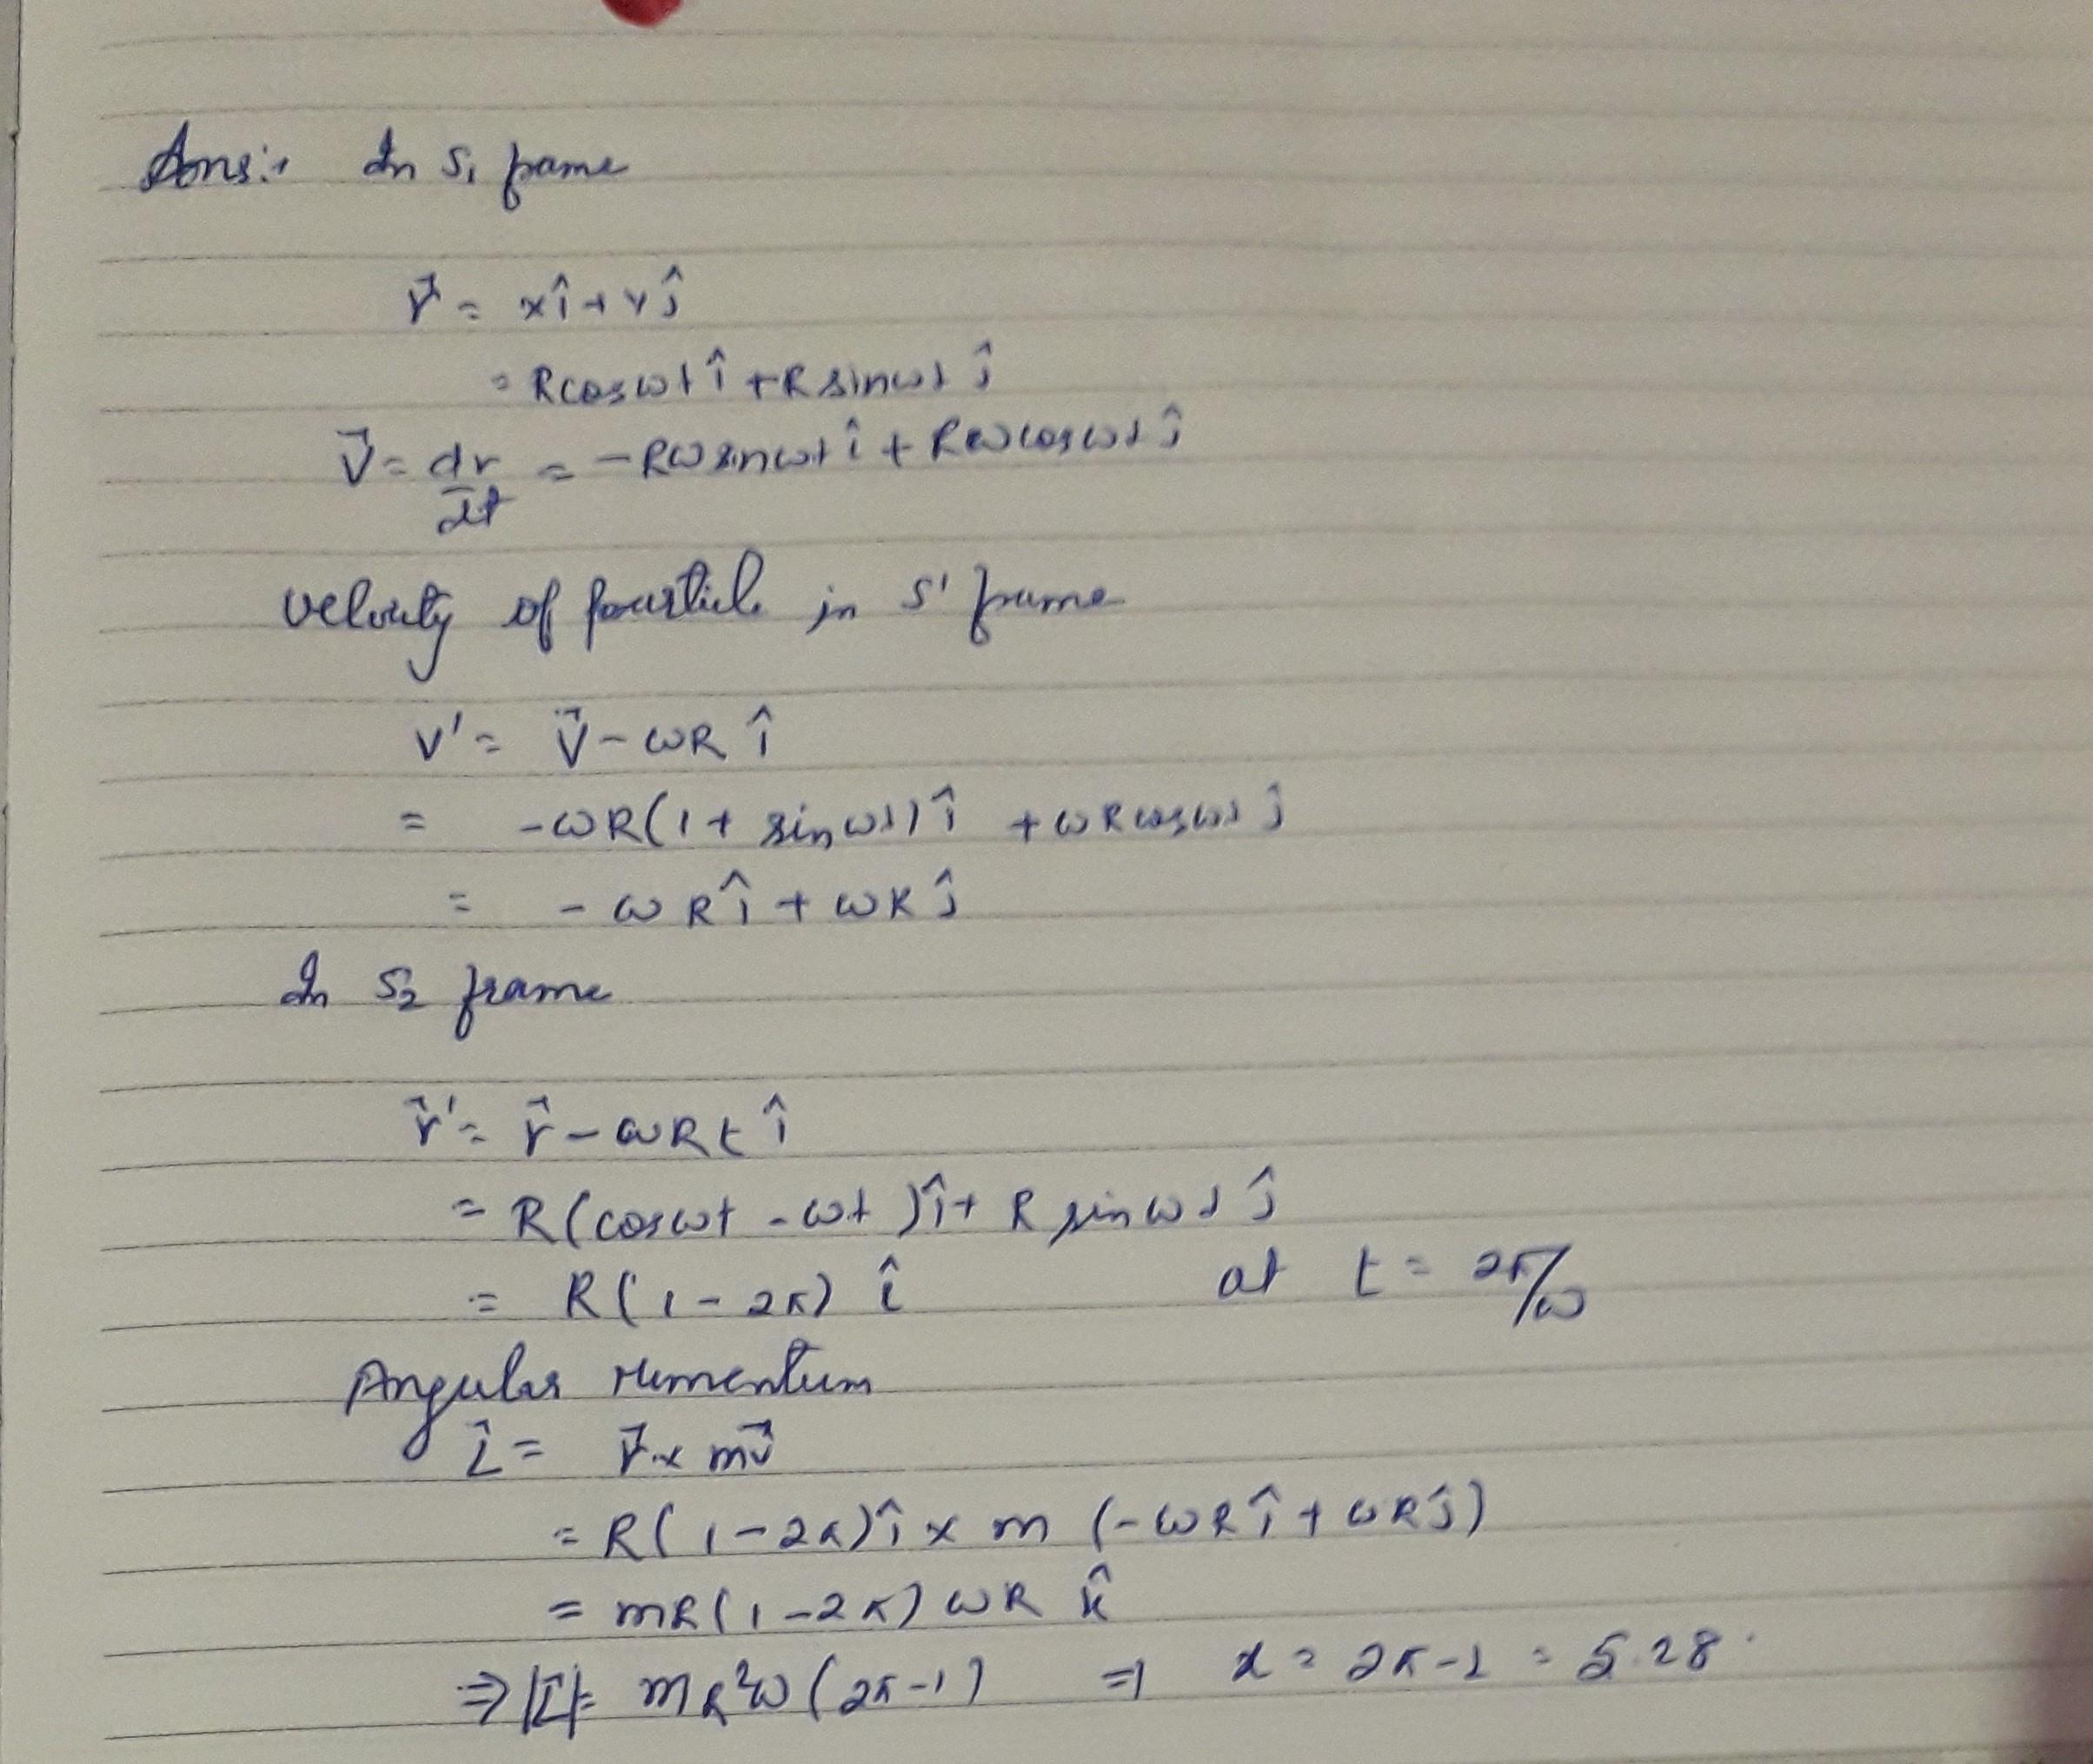 Ans:- In S₁ frame
r⃗ = xî + yĵ
= Rcosωt î + R sinωt ĵ
v⃗ = dr/dt = -Rω sinωt î + Rω cosωt ĵ
velocity of particle in s' frame
v' = v⃗ - ωR î
= -ωR(1 + sinωt) î + ωR cosωt ĵ
= - ωR î + ωR ĵ
In S₂ frame
r⃗' = r⃗ - ωRt î
= R(cosωt - ωt) î + R sinωt ĵ
= R(1 - 2π) î at t = 2π/ω
Angular Momentum
L̂ = r⃗ × mv⃗
= R(1 - 2π) î × m (-ωR î + ωR ĵ)
= mR(1 - 2π) ωR k̂
⇒ |L⃗| = mR²ω(2π-1) ⇒ x = 2π-1 = 5.28.